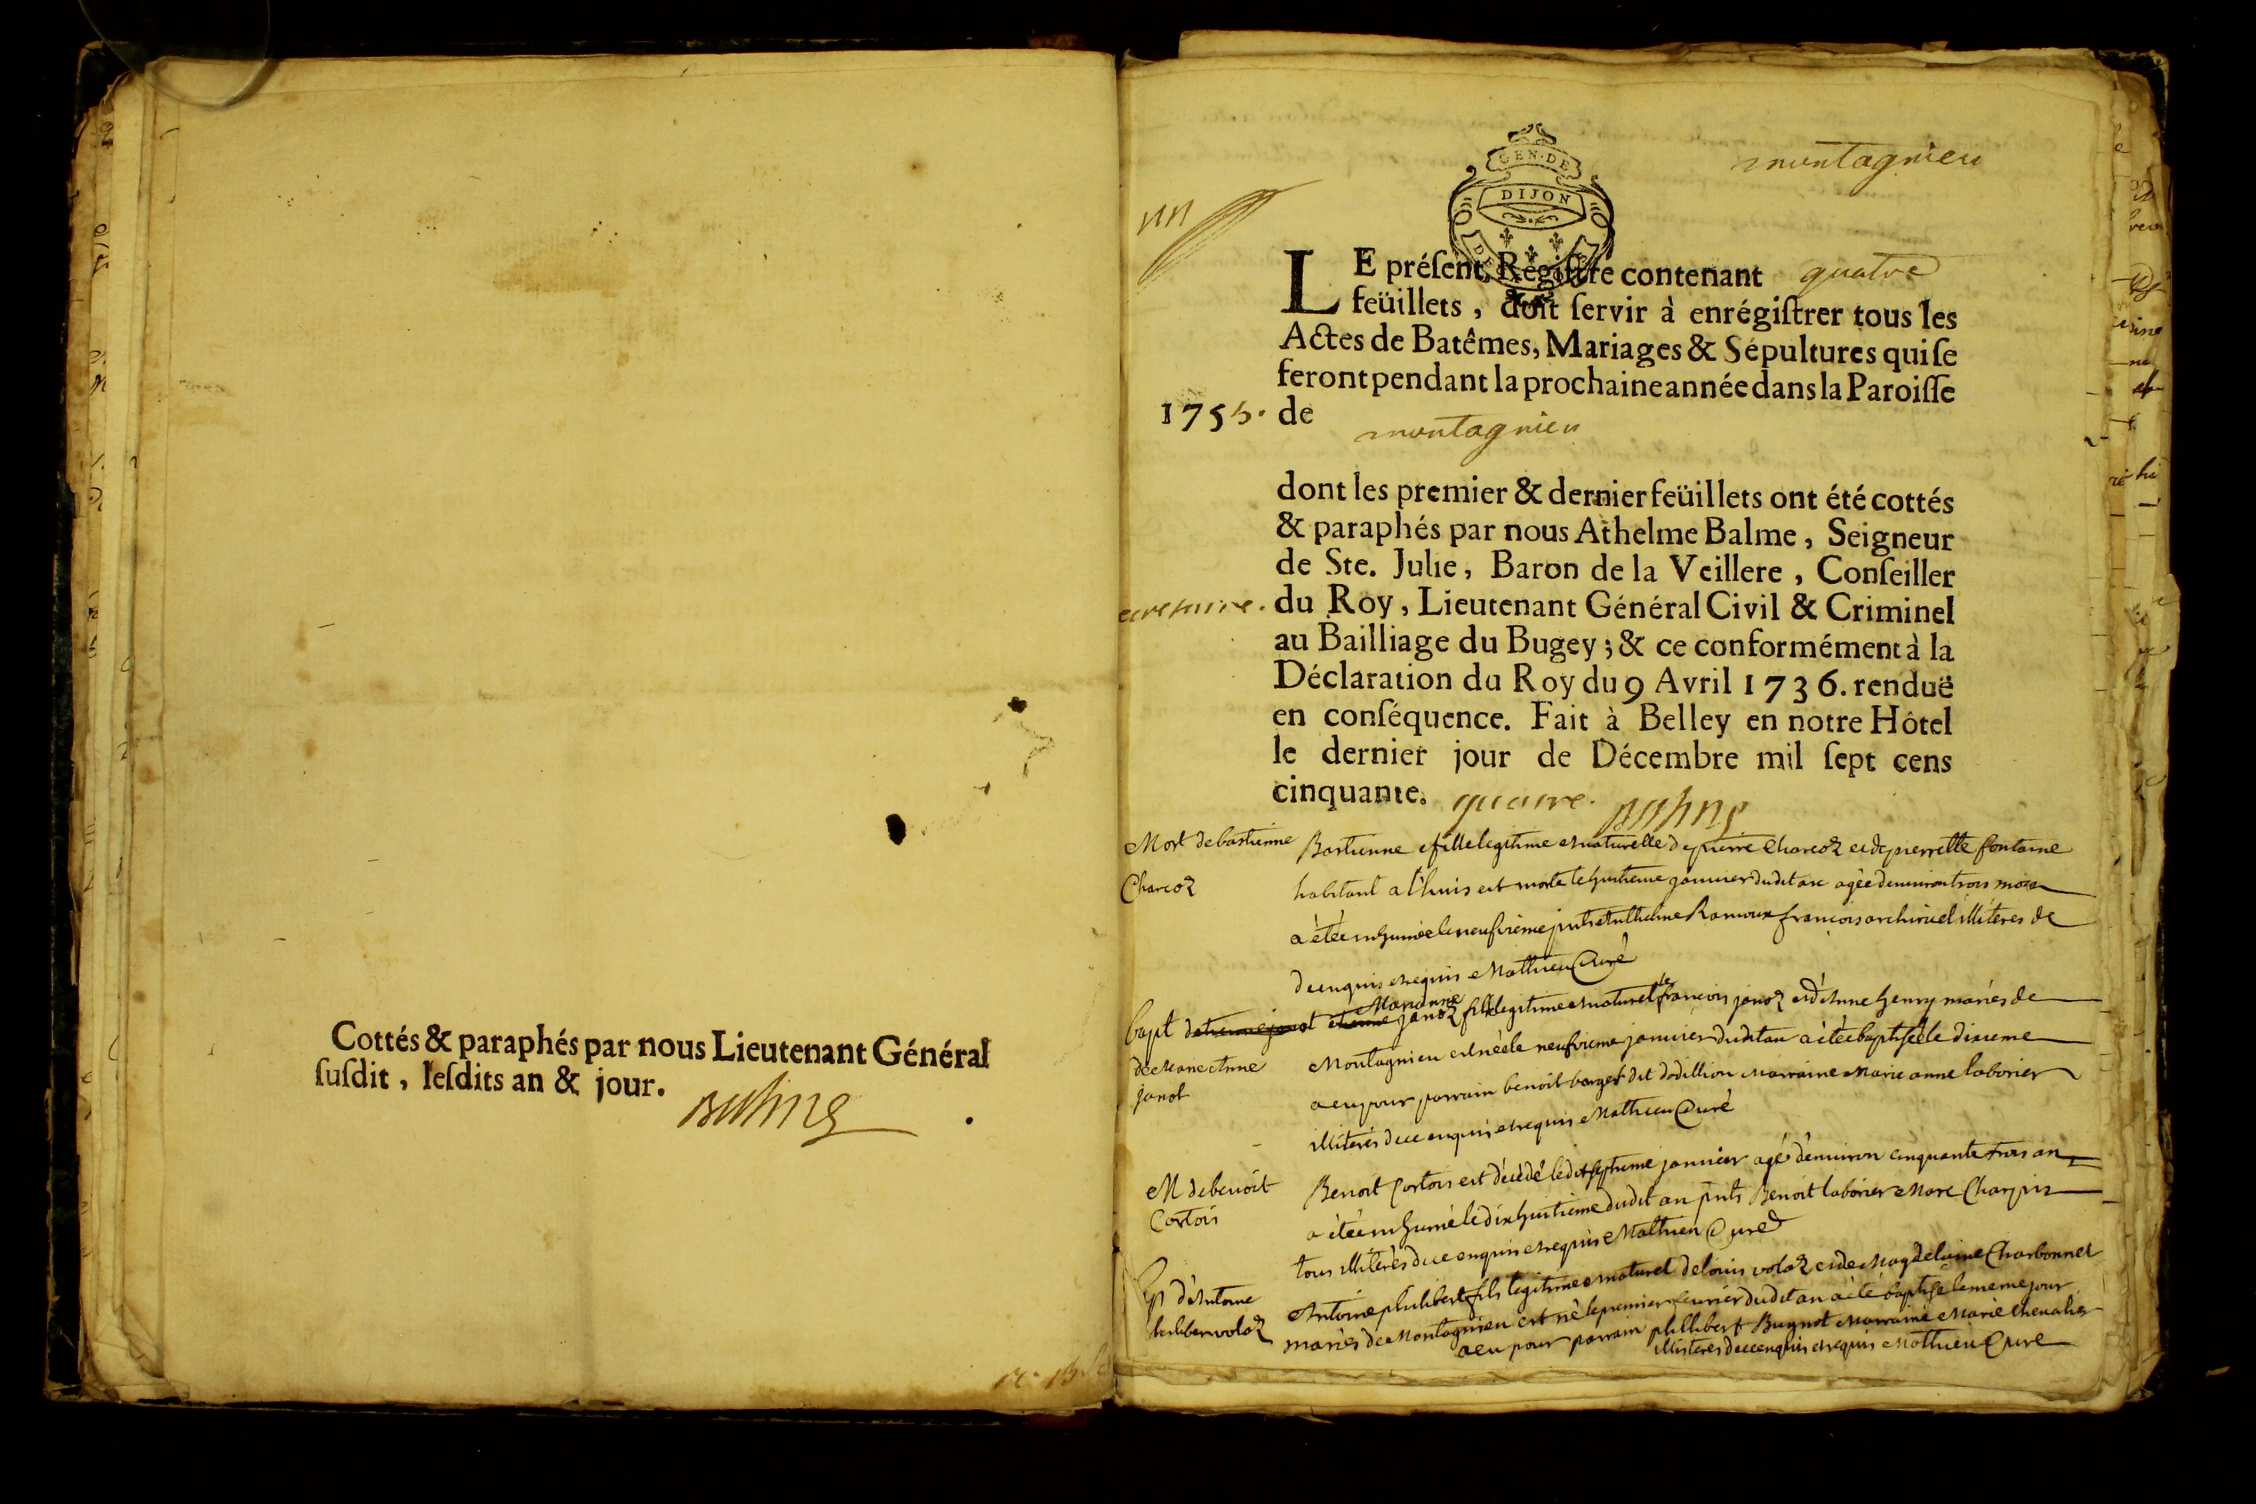 Cottés & paraphés par nous Lieutenant Général
ſuſdit, leſdits an & jour.
Balme
montagnieu
GEN·DE
DIJON
un
LE préſent Régiſtre contenant quatre
feüillets, doit ſervir à enrégiſtrer tous les
Actes de Batêmes, Mariages & Sépultures qui ſe
feront pendant la prochaine année dans la Paroiſſe
1755. de montagnieu
dont les premier & dernier feüillets ont été cottés
& paraphés par nous Athelme Balme, Seigneur
de Ste. Julie, Baron de la Veillere, Conſeiller
du Roy, Lieutenant Général Civil & Criminel
au Bailliage du Bugey; & ce conformément à la
Déclaration du Roy du 9 Avril 1736. renduë
en conſéquence. Fait à Belley en notre Hôtel
le dernier jour de Décembre mil ſept cens
cinquante. quatre. Balme
Mort de bastienne
Charcoz
Bastienne fille legitime et naturelle de pierre Charcoz et de pierrette fontaine
habitant a l'huis est morte le huitieme janvier dudit an agèe denviron trois mois
a ètèe inhumèe le neufvieme pnts Anthelme Ramoux françois archiruel illiteres de
de enquis et requis Mathieu Curè
bapt de etienne janot
de Marie Anne
janot
etienne Marianne janoz fille legitime et naturel de francois janoz et d'Anne henry mariés de
Montagnieu est nèe le neufvieme janvier dudit an a ètèe baptisèe le dixieme
a eu pour parrain benoit barget dit dodillion Marraine Marie anne laborier
illiterés de ce enquis et requis Mathieu Curè
M de benoit
Cortois
Benoit Cortois est dècèdè le dixseptieme janvier agè d'environ cinquante trois an
a ètè inhumè le dixhuitieme dudit an pnts Benoit laborier Marc Charpin
tous illiterès de ce enquis et requis Mathieu Cure
Bp d'Antoine
philiber voloz
Antoine philibert fils legitime et naturel de louis voloz et de Magdelaine Charbonnet
mariès de Montagnieu est nè le premier fevrier dudit an a ètè baptisè le meme jour
a eu pour parrain phillibert Bugnot Marraine Marie Chevalier
illiterès de ce enquis et requis Mathieu Cure